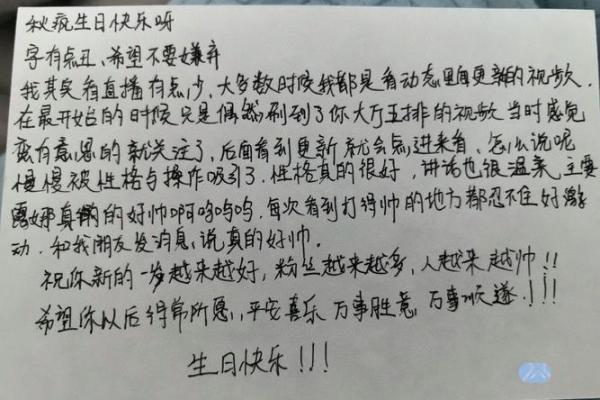 秋疯生日快乐呀
字有点丑、希望不要嫌弃
我其实看直播有点少,大多数时候我都是看动态里面更新的视频.
在最开始的时候只是偶然刷到了你大厅五排的视频当时感觉
蛮有意思的就关注了,后面看到更新就会点进来看、怎么说呢
慢慢被性格与操作吸引了.性格真的很好,讲话也很温柔,主要
露娜真的好帅啊呜呜呜.每次看到打得帅的地方都忍不住好激
动.和我朋友发消息,说真的好帅.
祝你新的一岁越来越好,粉丝越来越多,人越来越帅!!
希望你以后得常所愿,平安喜乐 万事胜意,万事顺遂.!!!
生日快乐!!!